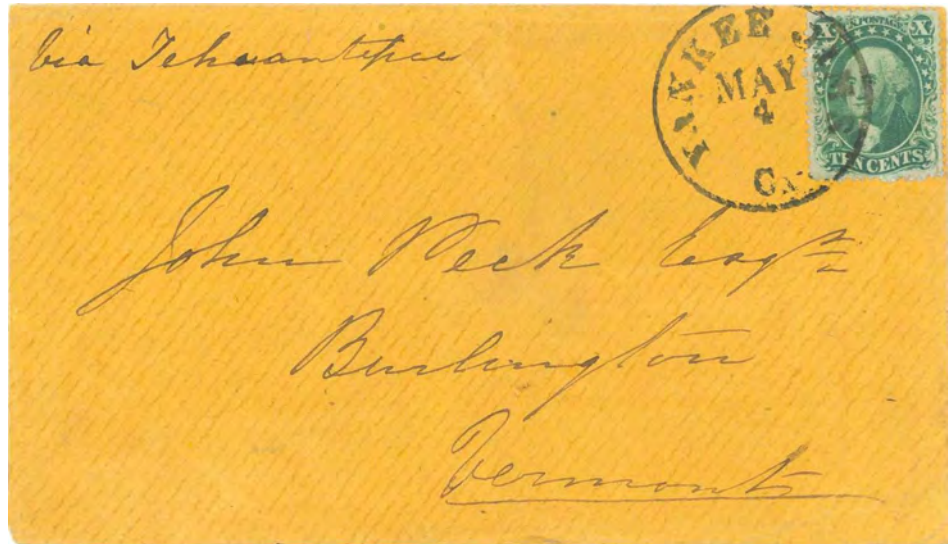 Via Tehuantepec
YANKEE JIMS
MAY
4
Cal.
U.S. POSTAGE
X X
TEN CENTS
John Peck Esqr
Burlington
Vermont